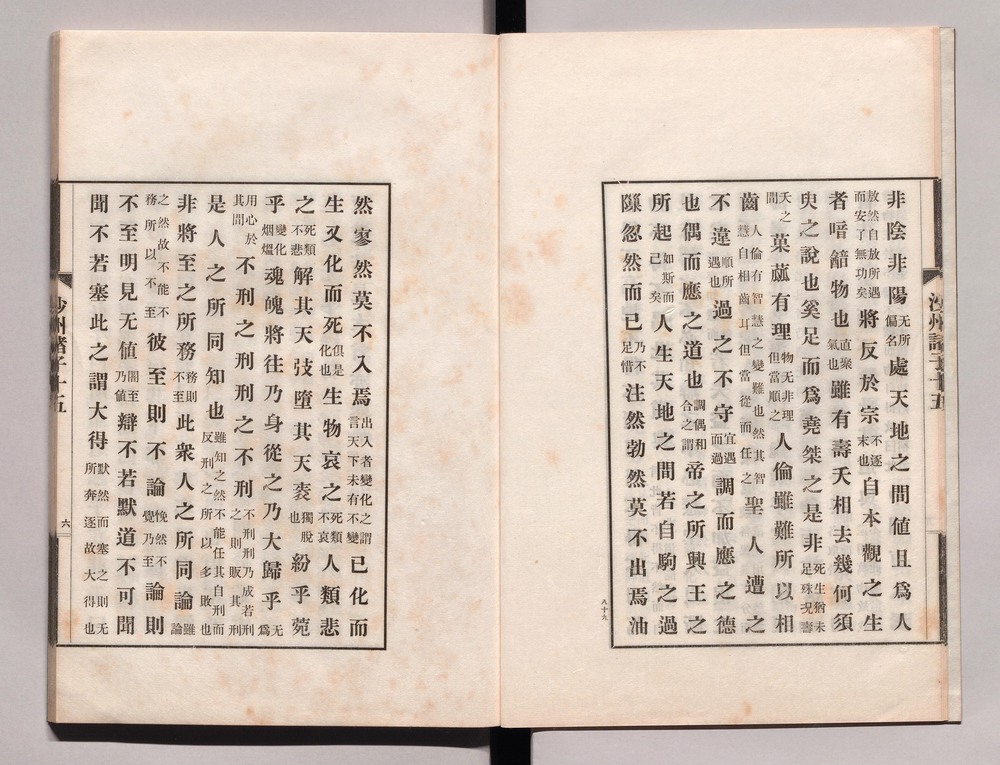 非陰非陽无所偏名處天地之間値且爲人
敖然自放所遇而安了無功矣將反於宗不逐末也自本觀之生
者喑物也直聚氣也雖有壽夭相去幾何須
臾之說也奚足而爲堯桀之是非死生猶未足殊况壽
夭之間菓蓏有理物无非理但當順之人倫雖難所以相
齒人倫有智慧之變難也然其智慧自相齒耳但當從而任之聖人遭之
不違順所遇也過之不守宜遇而過調而應之德
也偶而應之道也調偶和合之謂帝之所興王之
所起如斯而已矣人生天地之間若自駒之過
隟忽然而已乃不足惜注然勃然莫不出焉油
沙州諸子十五
八十九
然寥然莫不入焉出入者變化之謂言天下未有不變已化而
生又化而死俱是化也生物哀之死類不哀人類悲
之死類不悲解其天弢墮其天袠獨脫也紛乎菀
乎變化烟煴魂魄將往乃身從之乃大歸乎无爲
用心於其間不刑之刑刑之不刑不刑刑乃成若刑之則販其刑
是人之所同知也雖知之然不能任其自刑而反刑之所以多敗也
非將至之所務務則不至此衆人之所同論雖論
之然故不能不務所以不至彼至則不論悗然不覺乃至論則
不至明見无値闇至乃値辯不若默道不可聞
聞不若塞此之謂大得默然而塞之則无所奔逐故大得也
沙州諸子十五
六